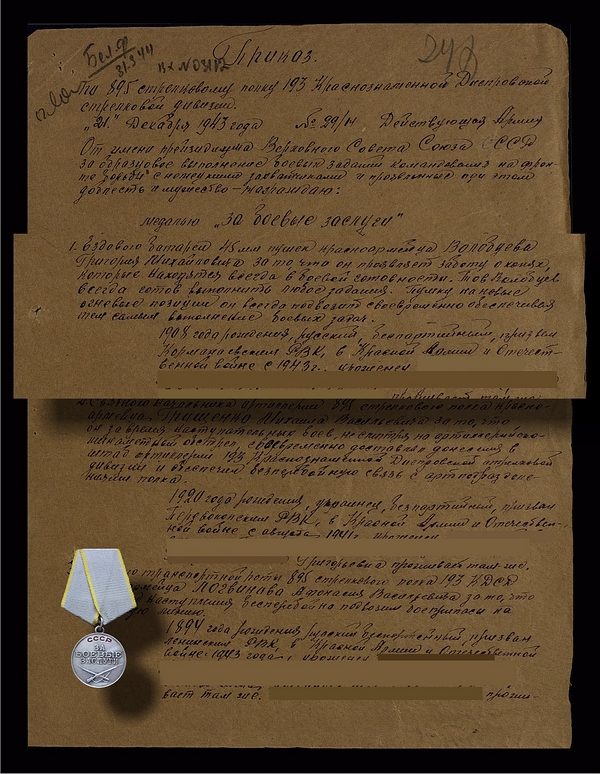 Бел.ф
31.3.44
вх №03112
Приказ.
248
По 895 стрелковому полку 193 Краснознаменной Днепровской
стрелковой дивизии.
"21." Декабря 1943 года № 29/н Действующая Армия
От имени президиума Верховного Совета Союза СССР
за образцовое выполнение боевых заданий командования на фрон-
те борьбы с немецкими захватчиками и проявленные при этом
доблесть и мужество - награждаю:
медалью "За боевые заслуги"
1. Ездового батареи 45 мм пушек красноармейца
Григория Михайловича за то, что он проявляет заботу о конях,
которые находятся всегда в боевой готовности. Тов.
всегда готов выполнить любое задание. Пушки на новые
огневые позиции он всегда подвозит своевременно обеспечивая
тем самым выполнение боевых задач.
1908 года рождения, русский, беспартийный, призван
РВК, в Красной Армии и Отечест-
венной войне с 1943 г.
проживает там же
2. Связного начальника артиллерии 895 стрелкового полка красно-
армейца Грищенко Михаила Васильевича за то, что
он за время наступательных боев, несмотря на артиллерийско-
минометный обстрел, своевременно доставлял донесения в
штаб артиллерии 193 Краснознаменной Днепровской стрелковой
дивизии и обеспечил бесперебойную связь с артподразделе-
ниями полка.
1920 года рождения, украинец, беспартийный, призван
РВК, в Красной Армии и Отечествен-
ной войне с августа 1941 г.
Григорьевна проживает там же.
транспортной роты 895 стрелкового полка 193 КДСД
Логвинова Афанасия Васильевича за то, что
наступления бесперебойно подвозил боеприпасы на
1894 года рождения, русский, беспартийный, призван
Ленинским РВК, в Красной Армии и Отечественной
войне 1943 года
вает там же. прожи-
СССР
ЗА
БОЕВЫЕ
ЗАСЛУГИ